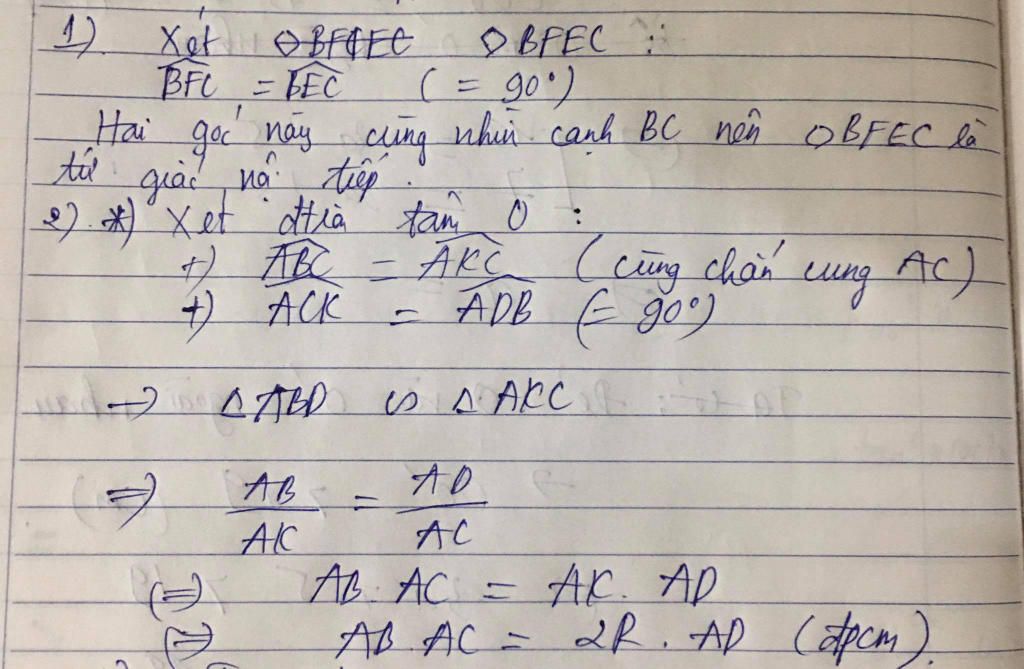 1). Xét ◇BFCEC ◇BFEC :
BFC = BEC ( = 90°)
Hai góc này cùng nhìn cạnh BC nên ◇BFEC là
tứ giác nội tiếp.
2). *) Xét đtròn tâm O :
+) ABC = AKC (cùng chắn cung AC)
+) ACK = ADB (= 90°)
→ △ABD ∽ △AKC
⇒ AB/AK = AD/AC
(⇒) AB. AC = AK. AD
(⇒) AB. AC = 2R. AD (đpcm).